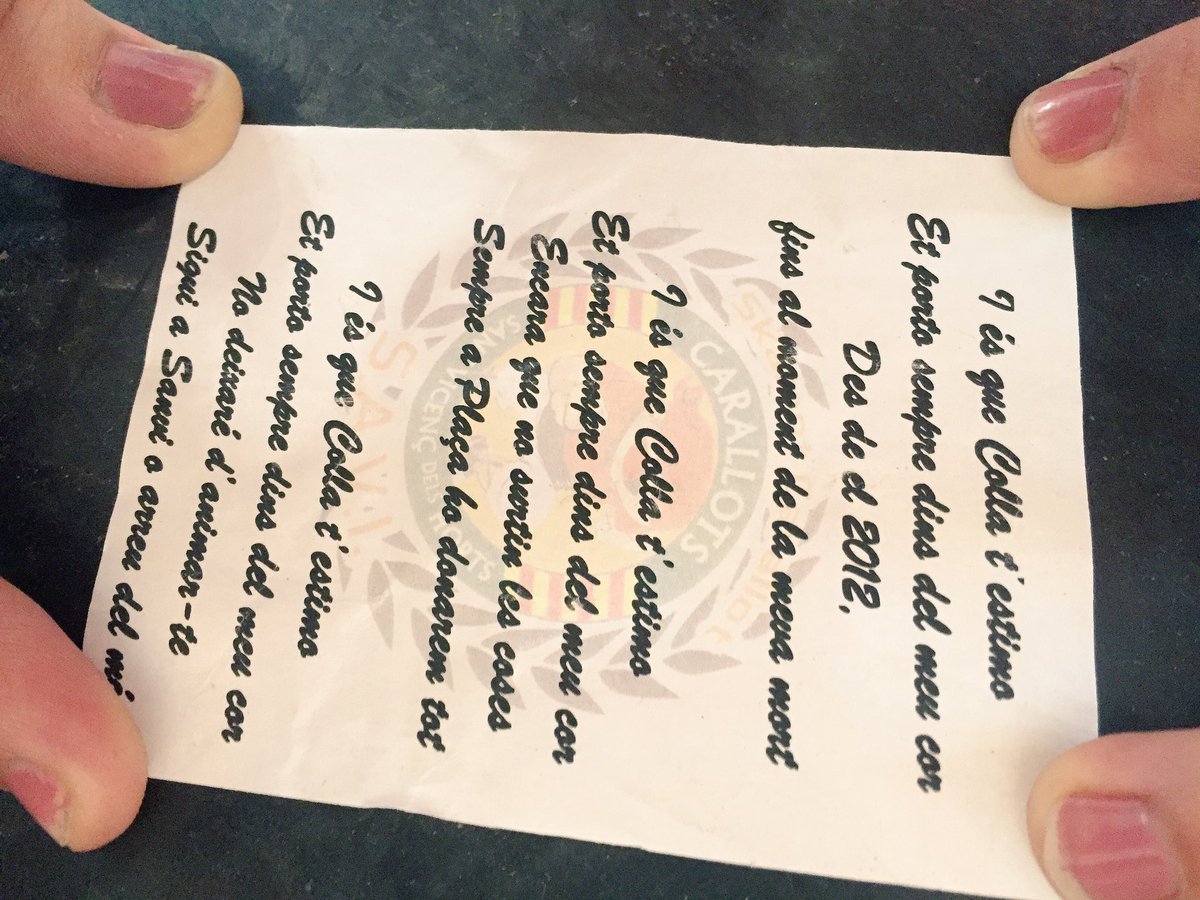 I és que Colla t'estimo
Et porto sempre dins del meu cor
Des de el 2012,
fins al moment de la meva mort
I és que Colla t'estimo
Et porto sempre dins del meu cor
Encara que no surtin les coses
Sempre a Plaça ho donarem tot
I és que Colla t'estimo
Et porto sempre dins del meu cor
No deixaré d'animar-te
Sigui a Sanvi o arreu del mó
CARALLOTS